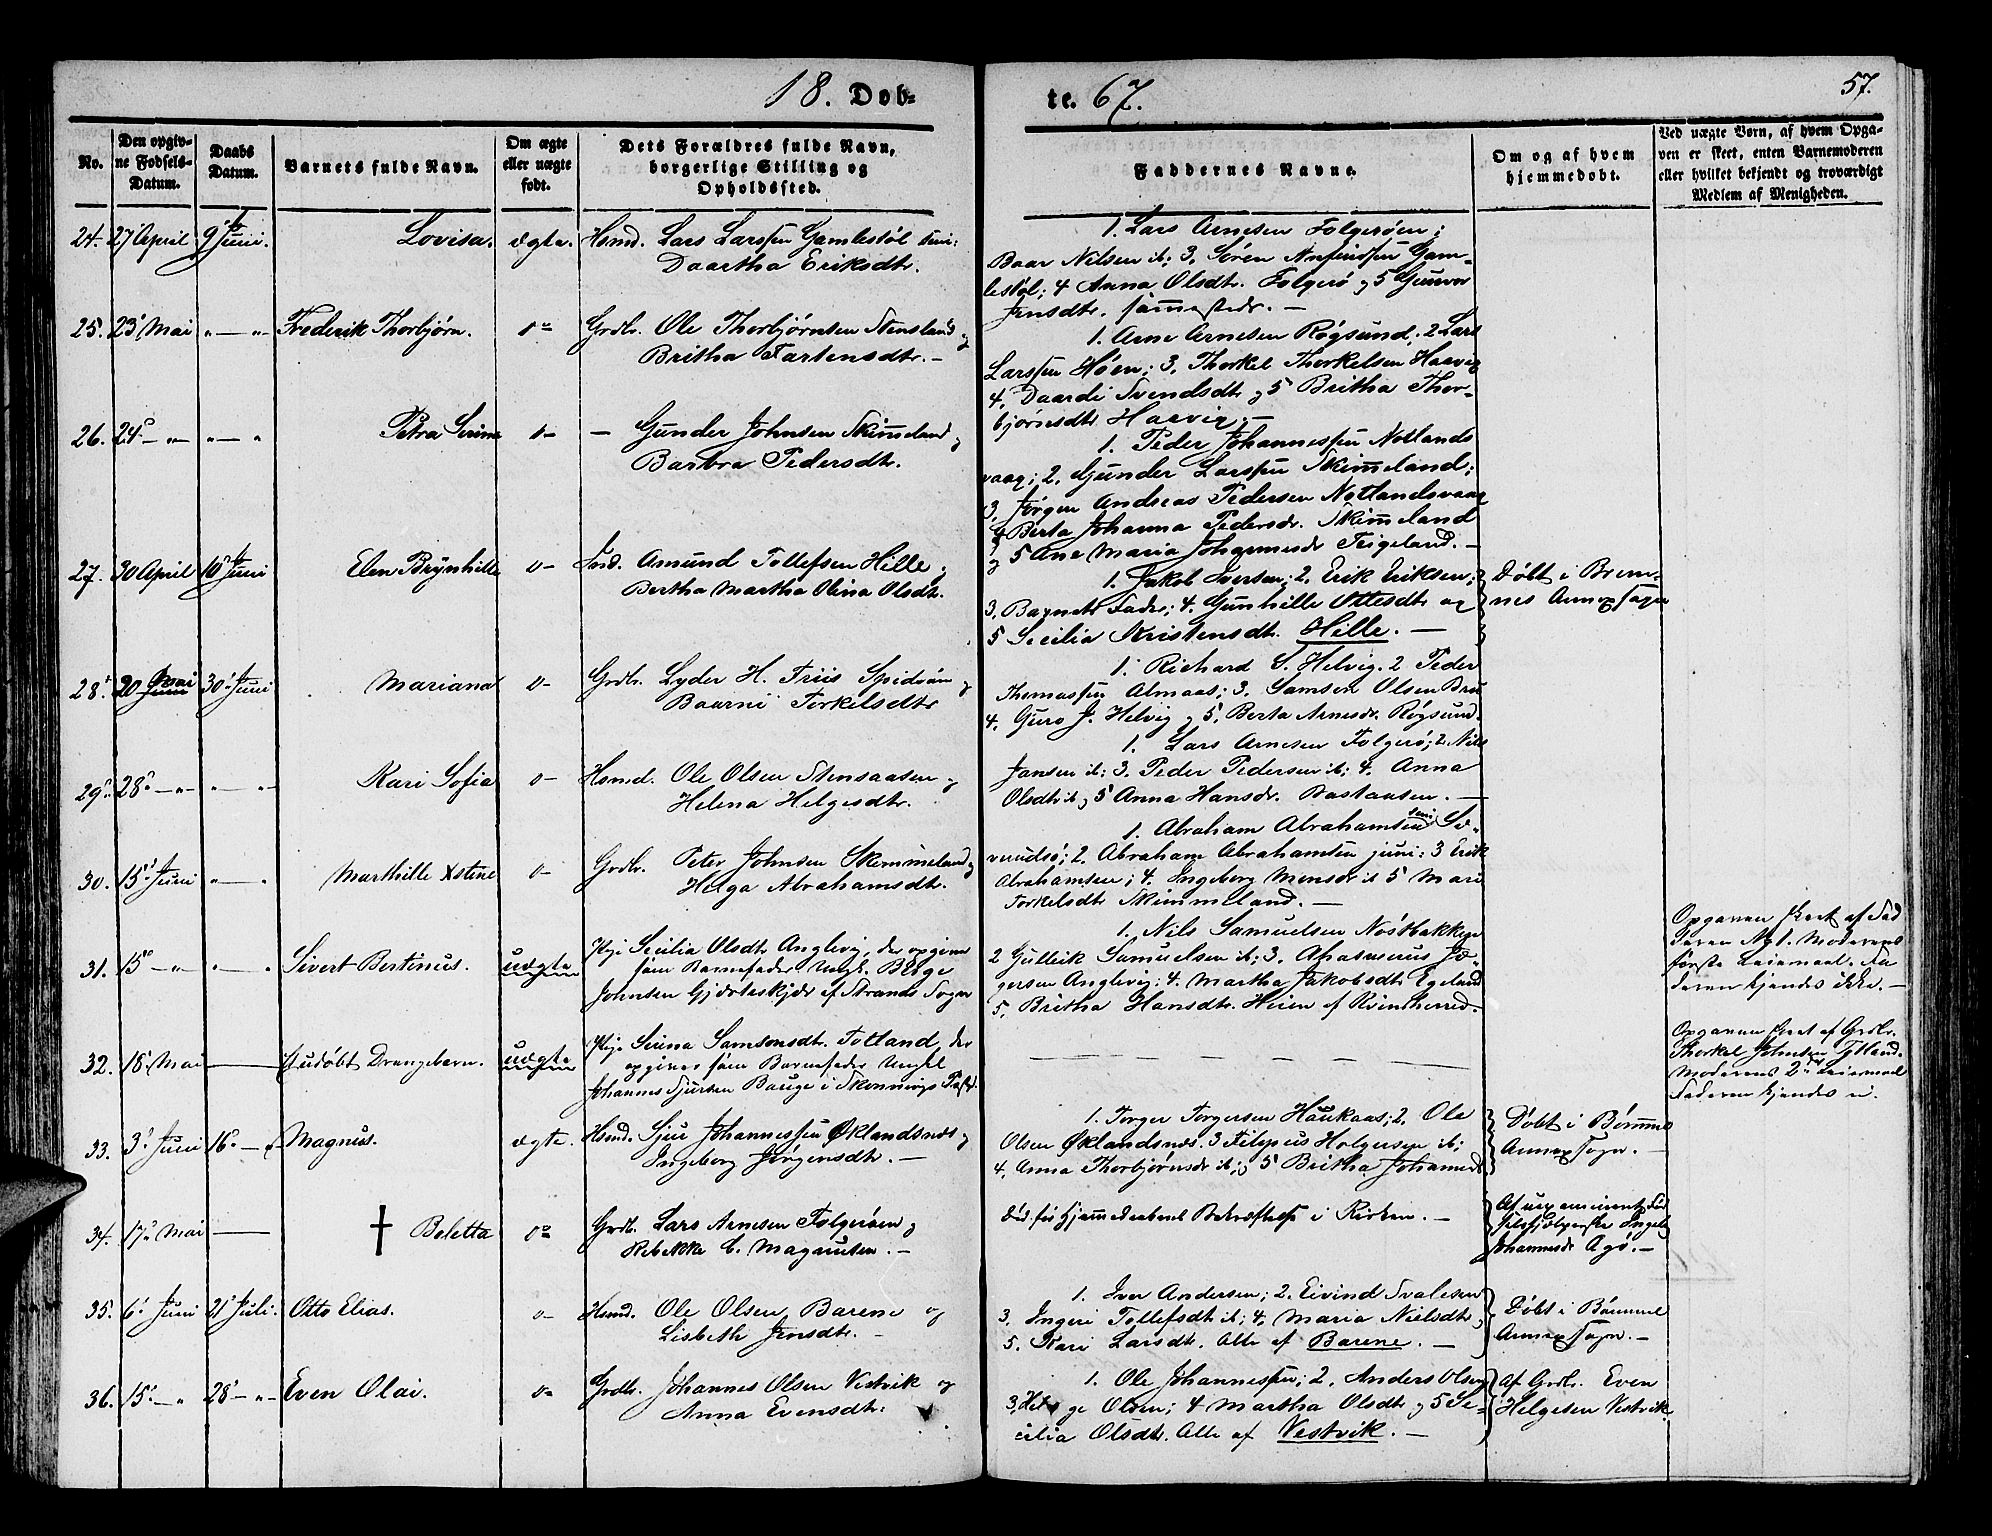 18. Døb-
te. 67.
57.
No.
Den opgiv-
ne Fødsels-
Datum.
Daabs
Datum.
Barnets fulde Navn.
Om ægte
eller uægte
født.
Dets Forældres fulde Navn,
borgerlige Stilling og
Opholdssted.
Faddernes Navne.
Om og af hvem
hjemmedøbt.
Ved uægte Børn, af hvem Opga-
ven er skeet, enten Barnemoderen
eller hvilket bekjendt og troværdigt
Medlem af Menigheden.
24. 27 April 9 Juni. Lovisa. ægte. Hsmd. Lars Larssen Gamlestøl
Daartha Eriksdtr.
1. Lars Arnesen Folgerøen;
Baar Nilsen it; 3. Søren Anfindsen Gam-
lestøl; 4 Anna Olsdtr. Folgerø og 5 Gunvor
Jensdtr. sammestedr. —
25. 23 Mai " — " Frederik Thorbjørn. Grdbr. Ole Thorbjørnsen Stensland og
Britha Tartensdtr. —
1. Arne Arnesen Røgsund. 2 Lars
Larssen Høen; 3. Thorkel Thorkelsen Haavig
4. Daardi Svendsdtr og 5 Britha Thor-
bjørnsdtr Haavig. —
26. 24 — " " — " Petra Serine — Gunder Johnsen Skimmeland og
Barbra Pedersdtr.
1. Peder Johannessen Notlands
vaag; 2. Gunder Larssen Skimmeland;
3. Jørgen Andreas Pedersen Notlandsvaag
4 Berta Johanna Pedersdr. Skimmeland
og 5 Ane Maria Johannesdr Teigeland. —
27. 30 April 10 Juni Elen Brynhille Amund Tollefsen Hille og
Bertha Martha Olina Olsdtr.
1. Jakob Iversen; 2. Erik Eriksen;
3. Barnets Fader; 4. Gunhille Ottesdtr og
5 Secilia Kristensdtr. Hille. —
Døbt i Brem-
nes Annexsogn
28. 20 Mai 30 Juni Mariana Grdbr. Lyder H. Friis Spidsøen og
Baarni Torkelsdtr
1. Richard S. Helvig. 2 Peder
Thomassen Almaas; 3. Samson Olsen Bru
4. Guro J. Helvig og 5. Berta Arnesdr. Røgsund.
29. 28 — " " — " Kari Sofia Hsmd. Ole Olsen Stensaasen og
Helena Helgesdtr.
1. Lars Arnesen Folgerø; 2. Nils
Jansen it; 3. Peder Pedersen it; 4. Anna
Olsdtr it og 5 Anna Hansdr. Bastaasen. —
30. 15 Juni " — " Marthille Xstine Grdbr. Peter Johnsen Skimmeland og
Helga Abrahamsdtr.
1. Abraham Abrahamsen Si-
2. Abraham Abrahamsen juni: 3 Erik
Abrahamsen; 4. Ingeborg Monsdr it 5 Mari
Torkelsdtr Skimmeland. —
31. 15 — " " — " Sivert Bertinus. uægte Pige Secilia Olsdtr Anglevig, der opgiver
som Barnefader Ungk. Berge
Johnsen Gjerteskjær af Strands Sogn
1. Nils Samuelsen Nøstbakken
2 Gullik Samuelsen it; 3. Asrasmus Jo-
gersen Anglevig; 4. Martha Jakobsdtr Egeland
5. Britha Hansdtr. Heien af Kvinherred. —
Opgaven skeet af Fad
deren No 1. Moderens
første Leiermaal. Fa
deren kjendes ikke. —
32. 18 Mai —— Udøbt Drengebarn. uægte Pige Sirina Samsonsdtr. Totland, der
opgiver som Barnefader Ungkl
Johannes Sjursen Bauge i
Opgaven skeet af Grdbr.
Thorkel Johnsen Tytland.
Moderens 2det Leiermaal
Faderen kjendes ei.
33. 3 Juni 16 — " Magnus. ægte. Hsmd. Sjur Johannessen Øklandsnes og
Ingeborg Jørgensdtr. —
1. Torger Torgersen Haukaas; 2. Ole
Olsen Øklandsnes. 3 Filippus Holgersen it;
4. Anna Thorbjørnsdr it; og 5 Britha Johannesd
Døbt i Bømmel
Annexsogn. —
34. 17 Mai —— † Beletta Grdbr. Lars Arnesen Folgerøen og
Rebekka C. Magnusen. —
Død før hjemmedaabens Bekræftelse i Kirken. —
Af
Ingeb.
Johannesdr Agø. —
35. 6 Juni 21 Juli. Otto Elias. Hsmd. Ole Olsen Barene og
Lisbeth Jensdtr. —
1. Iver Andersen; 2. Eivind Svalesen
3. Ingeri Tollefsdtr it; 4. Maria Nielsdtr
5. Kari Larsdtr. Alle af Barene. —
Døbt i Bømmel
Annexsogn. —
36. 15 — " 28 — " Even Olai. Grdbr. Johannes Olsen Vestvik og
Anna Evensdtr.
1. Ole Johannessen; 2. Anders Olsen
3. Helge Olsen; 4 Martha Olsdtr og 5 Se-
cilia Olsdtr. Alle af Vestvik. —
Af Grdbr. Even
Helgesen Vestvik.